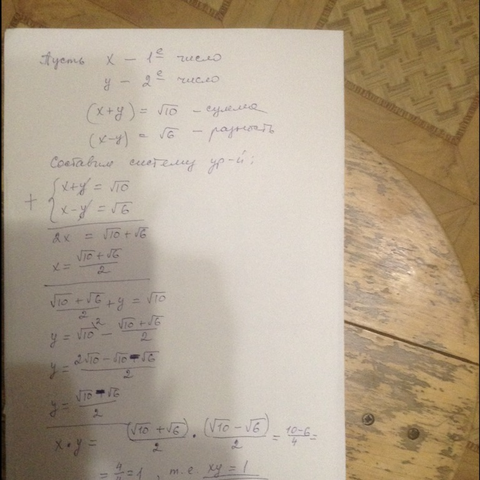 Пусть x – 1е число
y – 2е число
(x+y) = √10 – сумма
(x-y) = √6 – разность
Составим систему ур-й:
+ { x+y = √10
x-y = √6
2x = √10+√6
x = (√10+√6)/2
(√10+√6)/2 + y = √10
y = √10² - (√10+√6)/2
y = (2√10-√10-√6)/2
y = (√10-√6)/2
x·y = (√10+√6)/2 · (√10-√6)/2 = (10-6)/4 =
= 4/4 = 1, т.е. xy = 1